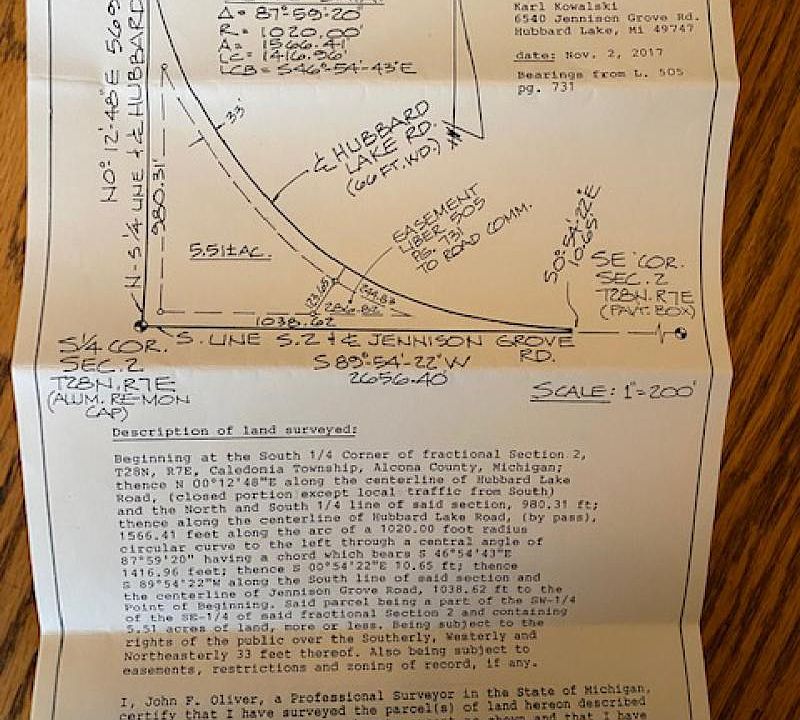 Δ = 87°-59'-20"
R = 1020.00'
A = 1566.41'
LC = 1416.96'
LCB = S46°-54'-43"E
Karl Kowalski
6540 Jennison Grove Rd.
Hubbard Lake, Mi 49747
date: Nov. 2, 2017
Bearings from L. 505
pg. 731
N0°12'-48"E
N-S 1/4 LINE & ℄ HUBBARD
980.31'
33'
℄ HUBBARD
LAKE RD.
(66 FT. WD.)
EASEMENT
LIBER 505
PG. 731
TO ROAD COMM.
5.51± AC.
S0°54'-22"E
10.65'
SE COR.
SEC. 2
T28N.R7E
(PAVT. BOX)
1038.62
S1/4 COR.
SEC. 2
T28N, R7E
(ALUM. RE-MON
CAP)
S. LINE S.2 & ℄ JENNISON GROVE
RD.
S89°-54'-22"W
2656.40'
SCALE: 1"=200'
Description of land surveyed:
Beginning at the South 1/4 Corner of fractional Section 2,
T28N, R7E, Caledonia Township, Alcona County, Michigan;
thence N 00°12'48"E along the centerline of Hubbard Lake
Road, (closed portion except local traffic from South)
and the North and South 1/4 line of said section, 980.31 ft;
thence along the centerline of Hubbard Lake Road, (by pass),
1566.41 feet along the arc of a 1020.00 foot radius
circular curve to the left through a central angle of
87°59'20" having a chord which bears S 46°54'43"E
1416.96 feet; thence S 00°54'22"E 10.65 ft; thence
S 89°54'22"W along the South line of said section and
the centerline of Jennison Grove Road, 1038.62 ft to the
Point of Beginning. Said parcel being a part of the SW-1/4
of the SE-1/4 of said fractional Section 2 and containing
5.51 acres of land, more or less. Being subject to the
rights of the public over the Southerly, Westerly and
Northeasterly 33 feet thereof. Also being subject to
easements, restrictions and zoning of record, if any.
I, John F. Oliver, a Professional Surveyor in the State of Michigan,
certify that I have surveyed the parcel(s) of land hereon described